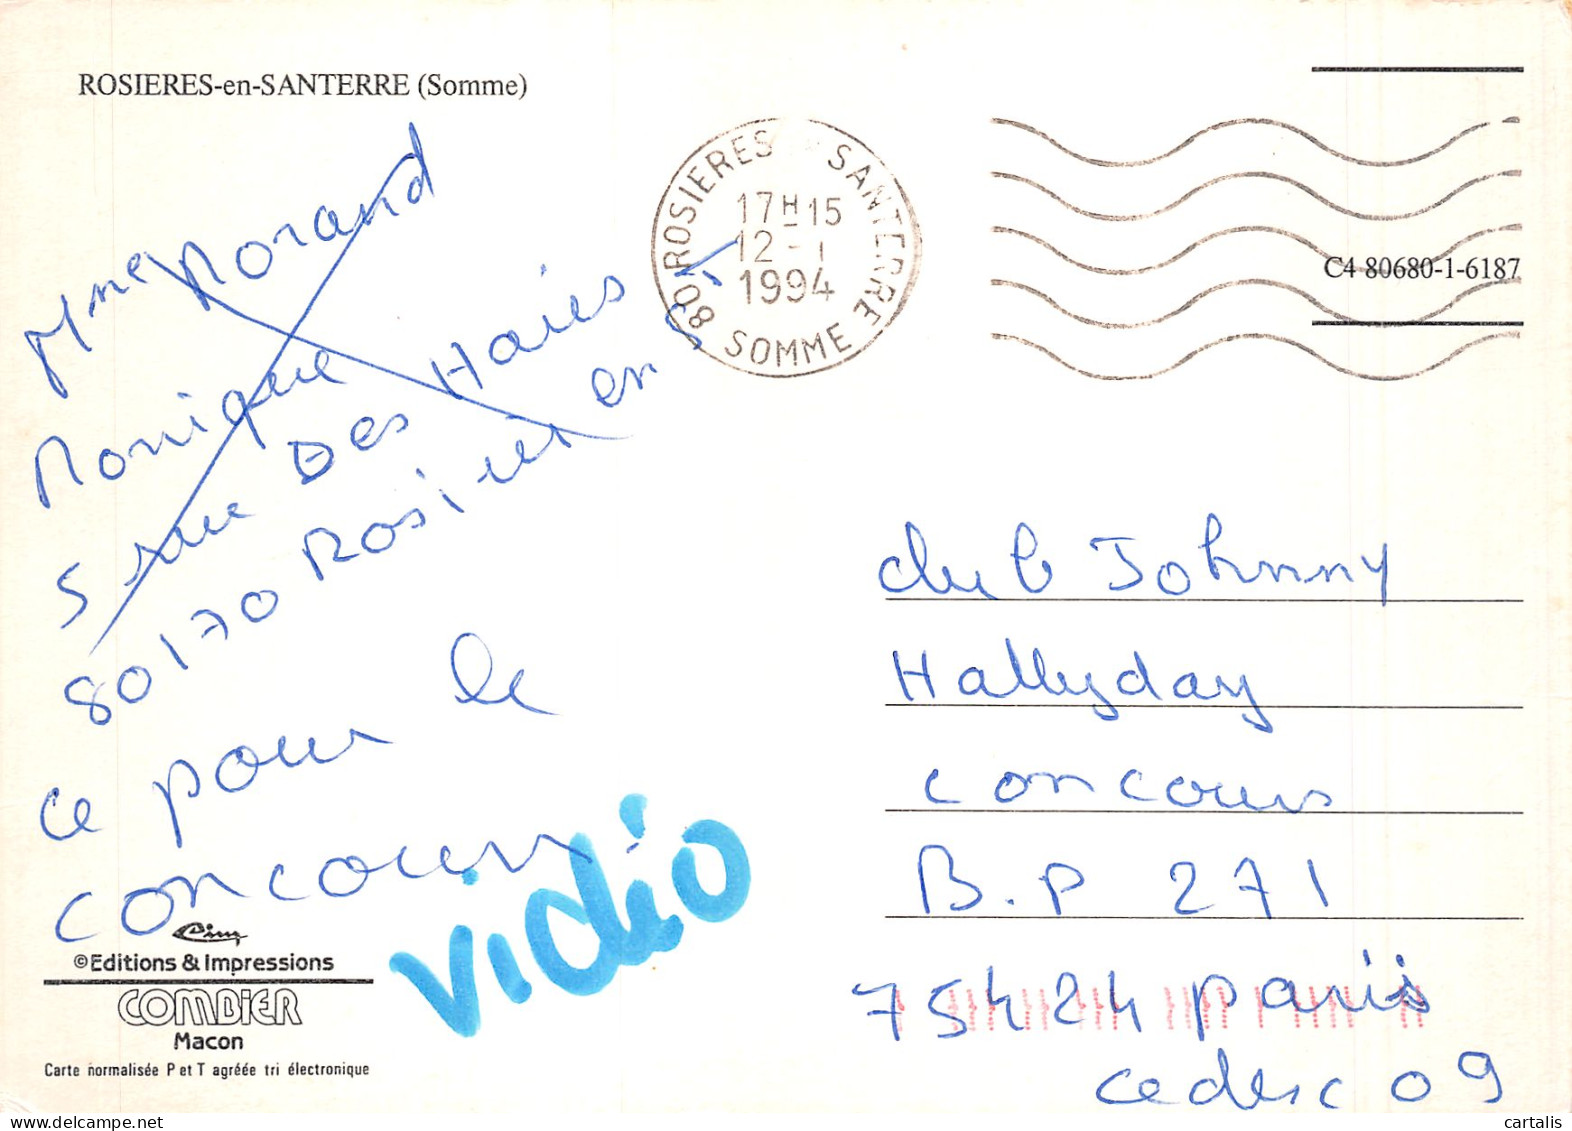 ROSIERES-en-SANTERRE (Somme)
80 ROSIERES SANTERRE SOMME
17H15
12-1
1994
C4 80680-1-6187
Mme Morand
Monique
5 rue Des Haies
80170 Rosieres en S
ce pour le
concours
vidéo
club Johnny
Hallyday
concours
B.P 271
75424 paris
cedex 09
Cim
©Editions & Impressions
COMBIER
Macon
Carte normalisée P et T agréée tri électronique
cartalis